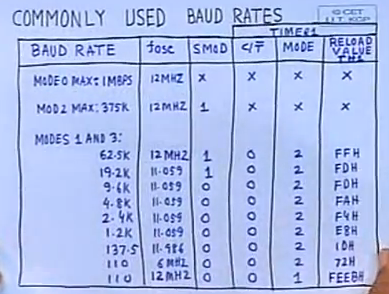 COMMONLY USED BAUD RATES
© CET
I.I.T. KGP
TIMER1
BAUD RATE fosc SMOD C/T̅ MODE RELOAD VALUE TH1
MODE 0 MAX: 1MBPS 12MHZ X X X X
MOD2 MAX: 375K 12MHZ 1 X X X
MODES 1 AND 3:
62.5K 12MHZ 1 0 2 FFH
19.2K 11.059 1 0 2 FDH
9.6K 11.059 0 0 2 FDH
4.8K 11.059 0 0 2 FAH
2.4K 11.059 0 0 2 F4H
1.2K 11.059 0 0 2 E8H
137.5 11.986 0 0 2 1DH
110 6MHZ 0 0 2 72H
110 12MHZ 0 0 1 FEEBH